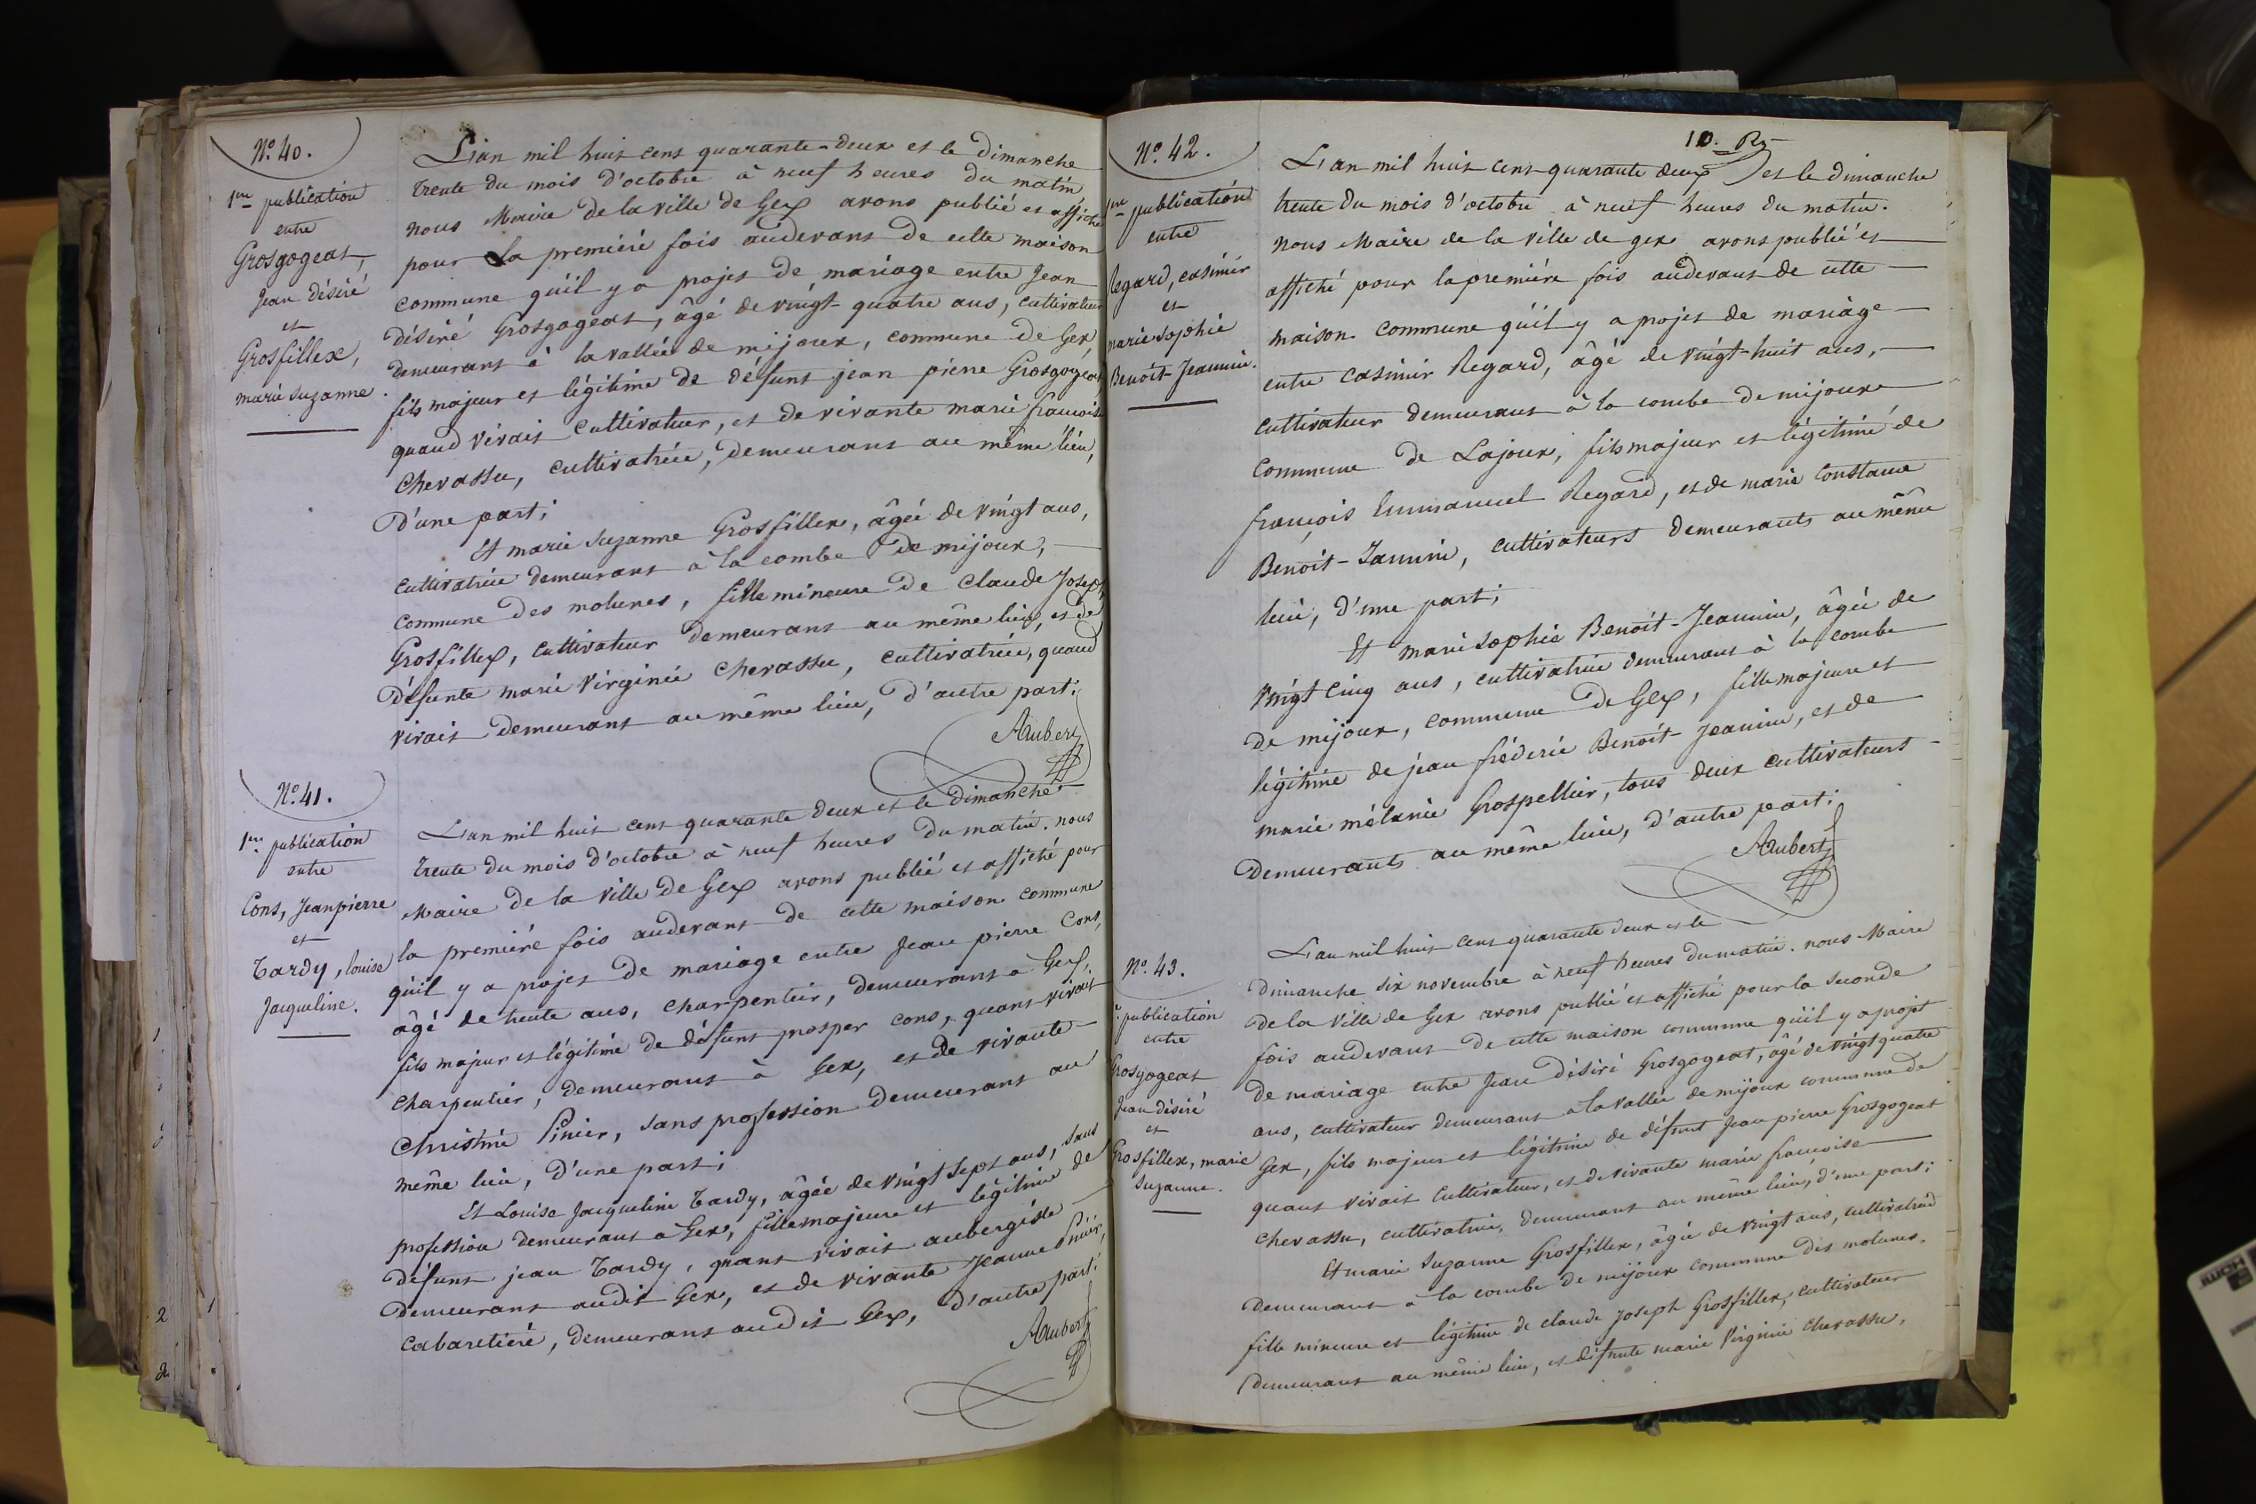 N.o 40.
1.re publication
entre
Grosgogeat,
Jean désiré
et
Grosfillex,
marie suzanne.
L'an mil huit cent quarante-deux et le dimanche
trente du mois d'octobre à neuf heures du matin
nous Maire de la ville de Gex avons publié et affiché
pour La première fois audevant de cette maison
commune qu'il y a projet de mariage entre Jean
désiré Grosgogeat, âgé de vingt-quatre ans, cultivateur
demeurant à la vallée de mijoux, commune de Gex,
fils majeur et légitime de défunt jean pierre Grosgogeat,
quand vivait cultivateur, et de vivante marie françoise
Chevassu, cultivatrice, demeurant au même lieu,
D'une part;
Et marie suzanne Grosfillex, âgée de vingt ans,
cultivatrice demeurant à la combe de mijoux,
commune des molunes, fille mineure de Claude Joseph
Grosfillex, cultivateur demeurant au même lieu, et de
défunte marie Virginie Chevassu, cultivatrice, quand
vivait demeurant au même lieu, d'autre part;
Aubert
N.o 41.
1.re publication
entre
Cons, Jeanpierre
et
Tardy, louise
Jacqueline.
L'an mil huit cent quarante deux et le dimanche
trente du mois d'octobre à neuf heures du matin. nous
Maire de la ville de Gex avons publié et affiché pour
la première fois audevant de cette maison commune
qu'il y a projet de mariage entre Jean pierre Cons,
âgé de trente ans, charpentier, demeurant à Gex,
fils majeur et légitime de défunt prosper cons, quant vivait
charpentier, demeurant à Gex, et de vivante
Christine Pinier, sans profession demeurant au
même lieu, d'une part;
Et Louise Jacqueline Tardy, âgée de vingt sept ans, sans
profession demeurant à Gex, fille majeure et légitime de
défunt jean Tardy, quant vivait aubergiste
demeurant audit Gex, et de vivante Jeanne Pinier,
cabaretière, demeurant audit Gex, d'autre part;
Aubert
10.
N.o 42.
1.re publication
entre
Regard, casimir
et
marie sophie
Benoit-Jeannin.
L'an mil huit cent quarante deux et le dimanche
trente du mois d'octobre à neuf heures du matin.
nous Maire de la ville de gex avons publié et
affiché pour la première fois audevant de cette
maison commune qu'il y a projet de mariage
entre casimir Regard, âgé de vingt-huit ans,
cultivateur demeurant à la combe de mijoux
commune de Lajoux, fils majeur et légitime de
françois Emmanuel Regard, et de marie constance
Benoit-Jannin, cultivateurs demeurants au même
lieu, d'une part;
Et marie sophie Benoit-Jeannin, âgée de
vingt cinq ans, cultivatrice demeurant à la combe
de mijoux, commune de Gex, fille majeure et
légitime de jean fréderic Benoit-Jeannin, et de
marie mélanie Grospellier, tous deux cultivateurs
demeurants au même lieu, d'autre part;
Aubert
N.o 43.
publication
entre
Grosgogeat
Jean désiré
et
Grosfillex, marie
Suzanne.
L'an mil huit cent quarante deux et le
dimanche six novembre à neuf heures du matin. nous Maire
de la ville de Gex avons publié et affiché pour la seconde
fois audevant de cette maison commune qu'il y a projet
de mariage entre Jean désiré Grosgogeat, âgé de vingt quatre
ans, cultivateur demeurant à la vallée de mijoux commune de
Gex, fils majeur et légitime de défunt Jean pierre Grosgogeat
quant vivait cultivateur, et de vivante marie françoise
chevassu, cultivatrice, demeurant au même lieu, d'une part;
Et marie Suzanne Grosfillex, âgée de vingt ans, cultivatrice
demeurant à la combe de mijoux commune des molunes,
fille mineure et légitime de claude Joseph Grosfillex, cultivateur
demeurant au même lieu, et défunte marie Virginie Chevassu,